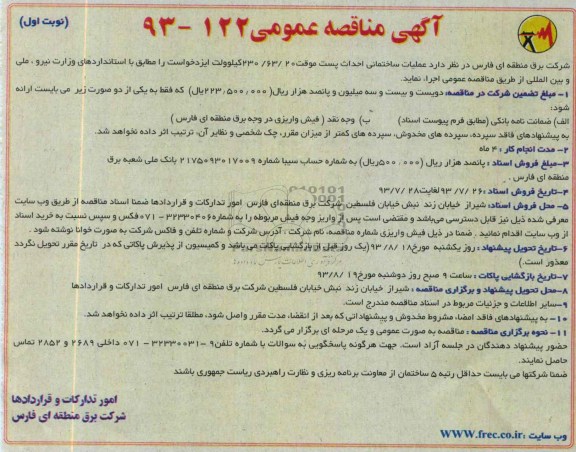 (نوبت اول)
آگهی مناقصه عمومی ۱۲۲ - ۹۳
شرکت برق منطقه ای فارس در نظر دارد عملیات ساختمانی احداث پست موقت ۲۰ /۶۳/ ۲۳۰کیلوولت ایزدخواست را مطابق با استانداردهای وزارت نیرو ، ملی
و بین المللی از طریق مناقصه عمومی اجرا، نماید.
۱- مبلغ تضمین شرکت در مناقصه: دویست و بیست و سه میلیون و پانصد هزار ریال( ۲۲۳/۵۰۰/۰۰۰ریال) که فقط به یکی از دو صورت زیر می بایست ارائه
شود:
الف) ضمانت نامه بانکی (مطابق فرم پیوست اسناد) ب) وجه نقد ( فیش واریزی در وجه برق منطقه ای فارس )
به پیشنهادهای فاقد سپرده، سپرده های مخدوش، سپرده های کمتر از میزان مقرر، چک شخصی و نظایر آن، ترتیب اثر داده نخواهد شد.
۲- مدت انجام کار : ۴ ماه
۳-مبلغ فروش اسناد : پانصد هزار ریال (۵۰۰/۰۰۰ریال) به شماره حساب سیبا شماره ۲۱۷۵۰۹۳۰۱۷۰۰۹ بانک ملی شعبه برق
منطقه ای فارس .
۴-تاریخ فروش اسناد: ۲۶ /۷/ ۹۳لغایت۲۸ /۹۳/۷
۵- محل فروش اسناد: شیراز خیابان زند نبش خیابان فلسطین شرکت برق منطقه‌ای فارس امور تدارکات و قراردادها ضمنا اسناد مناقصه از طریق وب سایت
معرفی شده ذیل نیز قابل دسترسی می‌باشد و مقتضی است پس از واریز وجه فیش مربوطه را به شماره۳۲۳۳۰۴۰۶ - ۰۷۱فکس و سپس نسبت به خرید اسناد
از وب سایت اقدام نمائید . ضمنا در ذیل فیش واریزی شماره مناقصه، نام شرکت ، آدرس شرکت و شماره تلفن و فاکس شرکت به صورت خوانا نوشته شود .
۶-تاریخ تحویل پیشنهاد : روز یکشنبه مورخ۱۸ /۹۳/۸(یک روز قبل از بازگشایی پاکات می‌باشد و کمیسیون از پذیرش پاکاتی که در تاریخ مقرر تحویل نگردد
معذور است.)
۷-تاریخ بازگشایی پاکات : ساعت ۹ صبح روز دوشنبه مورخ۱۹ /۹۳/۸
۸-محل تحویل پیشنهاد و برگزاری مناقصه : شیراز خیابان زند نبش خیابان فلسطین شرکت برق منطقه ای فارس امور تدارکات و قراردادها
۹-سایر اطلاعات و جزئیات مربوط در اسناد مناقصه مندرج است.
۱۰- به پیشنهادهای فاقد امضا، مشروط مخدوش و پیشنهاداتی که بعد از انقضاء مدت مقرر واصل شود، مطلقا ترتیب اثر داده نخواهد شد.
۱۱- نحوه برگزاری مناقصه : مناقصه به صورت عمومی و یک مرحله ای برگزار می گردد.
حضور پیشنهاد دهندگان در جلسه آزاد است. جهت هرگونه پاسخگویی به سوالات با شماره تلفن۹ -۳۲۳۳۰۰۳۱ - ۰۷۱ داخلی ۲۶۸۹ و ۲۸۵۲ تماس
حاصل نمایند.
ضمنا شرکتها می بایست حداقل رتبه ۵ ساختمان از معاونت برنامه ریزی و نظارت راهبردی ریاست جمهوری باشند
امور تدارکات و قراردادها
شرکت برق منطقه ای فارس
وب سایت :www.frec.co.ir